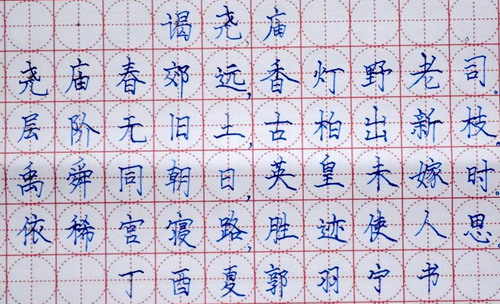 谒尧庙
尧庙春郊远，香灯野老司。
层阶无旧土，古柏出新枝。
禹舜同朝日，英皇未嫁时
依稀宫寝路，胜迹使人思
丁酉夏郭羽宁书